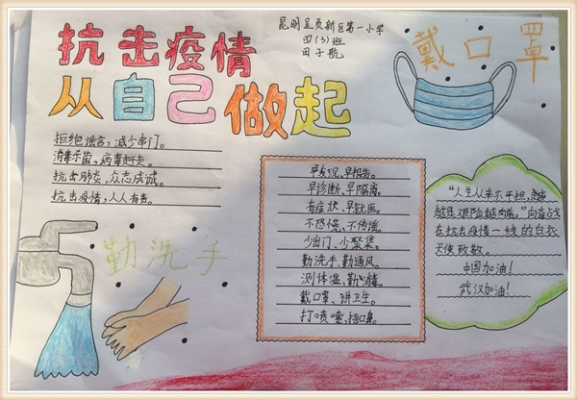 抗击疫情
从自己做起
昆明呈贡新区第一小学
四(3)班
田子航
戴口罩
拒绝谣言,减少串门。
消毒杀菌、病毒赶走。
抗击肺炎,众志成诚。
抗击疫情,人人有责。
勤洗手
早发现,早报告。
早诊断,早隔离。
有症状、早就医。
不恐慌、不传谣。
少出门、少聚集。
勤洗手、勤通风。
测体温、勤消毒。
戴口罩、讲卫生。
打喷嚏,捂口鼻。
“人生从来不平坦,
越是艰险越向前。”向奋战
在抗击疫情一线的白衣
天使致敬。
中国加油!
武汉加油!